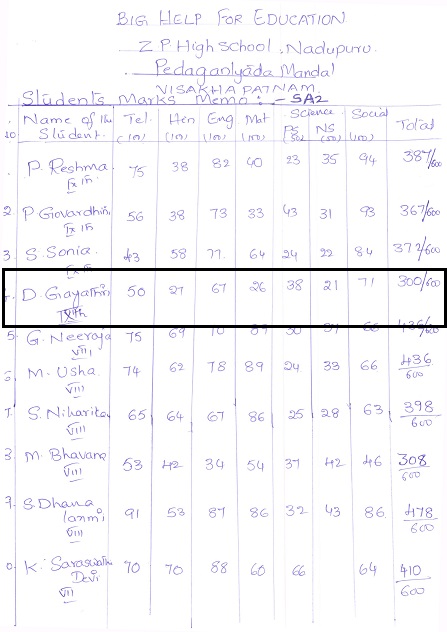 BIG HELP FOR EDUCATION
Z P High School, Nadupuru.
Pedagantyada Mandal
VISAKHAPATNAM.
Students Marks Memo :- SA2
Name of the Student. Tel. (100) Hen (100) Eng (100) Mat (100) Science PS (50) NS (50) Social (100) Total
P. Reshma 75 38 82 40 23 35 94 387/600
IX th
2. P Govardhini 56 38 73 33 43 31 93 367/600
IX th
3. S. Sonia. 43 58 77. 64 24 22 84 372/600
D. Gayathiri 50 27 67 26 38 21 71 300/600
5. G. Neeraja 75 69
VIII
M. Usha. 74 62 78 89 24 33 66 436/600
VIII
7. S. Niharika 65 64 67 86 25 28 63 398/600
VIII
M. Bhavana 53 42 34 54 37 42 46 308/600
VIII
9. S. Dhana laxmi 91 53 87 86 32 43 86. 478/600
VIII
K. Saraswathi Devi 70 70 88 60 66 64 410/600
VII